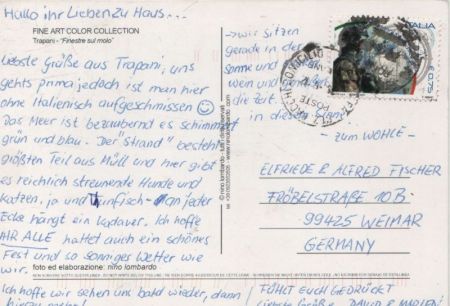 Hallo ihr Lieben zu Haus...
FINE ART COLOR COLLECTION
Trapani - "Finestre sul molo"
Liebste Grüße aus Trapani; uns
gehts prima jedoch ist man hier
ohne Italienisch aufgeschmissen
Das Meer ist bezaubernd es schimmert
grün und blau. Der "Strand" besteht
größten Teil aus Müll und hier gibt
es reichlich streunende Hunde und
Katzen, ja und Tunfisch - an jeder
Ecke hängt ein Kadaver. Ich hoffe
IHR ALLE hattet auch ein schönes
Fest und so sonniges Wetter wie
wir.
foto ed elaborazione: nino lombardo
Ich hoffe wir sehen uns bald wieder, dann
© nino lombardo - tutti i diritti riservati
www.ninolombardo.com
→ wir sitzen
gerade in der
Sonne und
Wein
die Zeit.
in diesem
ITALIA
€0,75
POSTE
- zum WOHLE -
ELFRIEDE & ALFRED FISCHER
FRÖBELSTRAßE 10B
99425 WEIMAR
GERMANY
FÜHLT EUCH GEDRÜCKT
Liebste Grüße DAVID & MARLEN